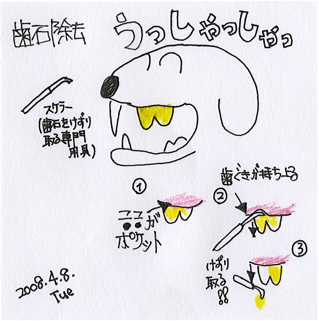 歯石除去
うっしゃっしゃっ
スケラー
(歯石をけずり
取る専門
用具)
①
ココが
ポケット
②
歯ぐきが持ち上る
③
けずり
取る!!
2008.4.8.
Tue